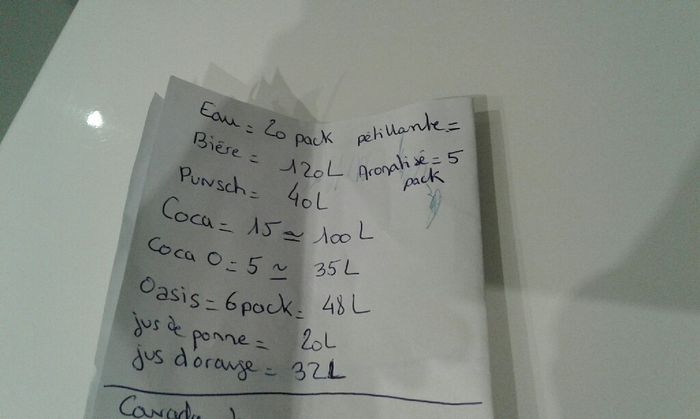 Eau = 20 pack pétillante =
Bière = 120L Aromatisé = 5 pack
Punsch = 40L
Coca = 15 ≃ 100L
Coca 0 = 5 ≃ 35L
Oasis = 6 pack = 48L
jus de ponne = 20L
jus d'orange = 32L